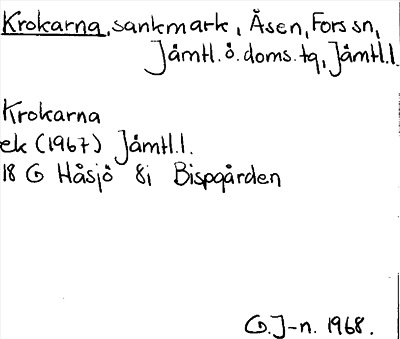 Krokarna, sankmark, Åsen, Fors sn,
Jämtl. ö. doms. tg, Jämtl. l.
Krokarna
ek (1967) Jämtl. l.
18 G Håsjö 8i Bispgården
G. J-n. 1968.